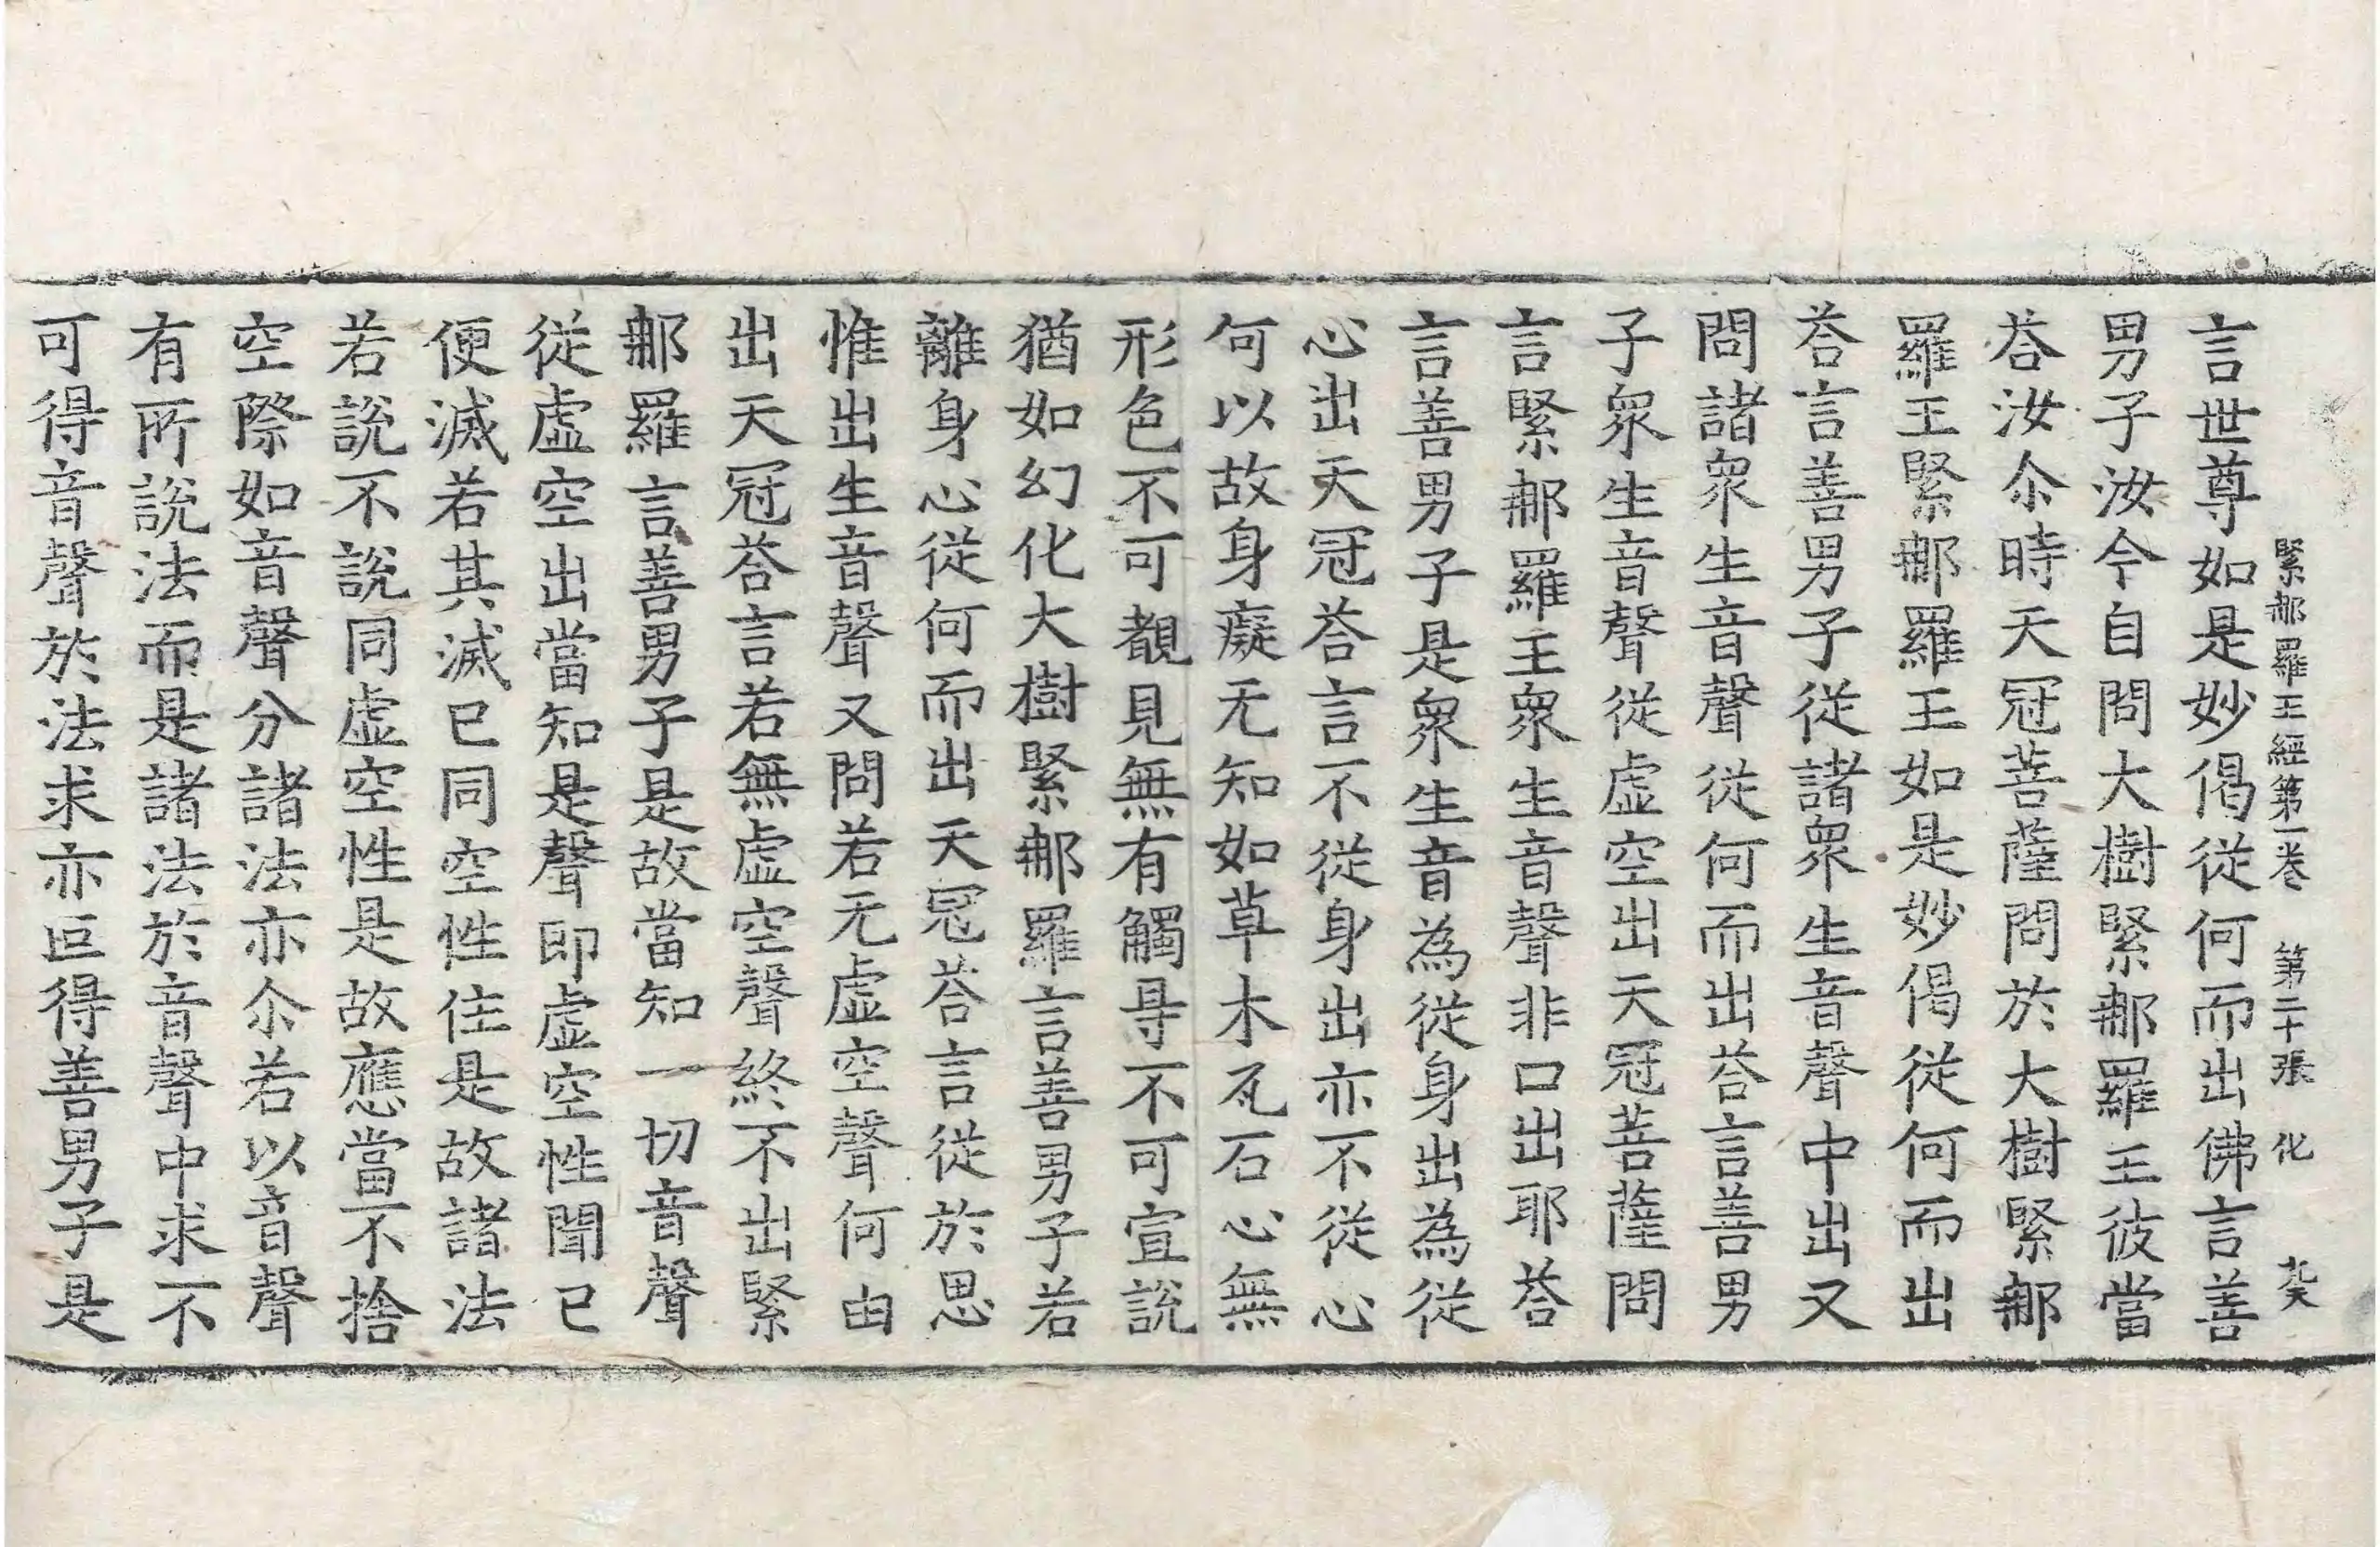 緊那羅王經第一卷　第二十張　化
言世尊如是妙偈從何而出佛言善
男子汝今自問大樹緊那羅王彼當
荅汝尒時天冠菩薩問於大樹緊那
羅王緊那羅王如是妙偈從何而出
荅言善男子從諸衆生音聲中出又
問諸衆生音聲從何而出荅言善男
子衆生音聲從虛空出天冠菩薩問
言緊那羅王衆生音聲非口出耶荅
言善男子是衆生音為從身出為從
心出天冠荅言不從身出亦不從心
何以故身癡无知如草木瓦石心無
形色不可覩見無有觸㝵不可宣說
猶如幻化大樹緊那羅言善男子若
離身心從何而出天冠荅言從於思
惟出生音聲又問若无虛空聲何由
出天冠荅言若無虛空聲終不出緊
那羅言善男子是故當知一切音聲
從虛空出當知是聲即虛空性聞已
便滅若其滅已同空性住是故諸法
若說不說同虛空性是故應當不捨
空際如音聲分諸法亦尒若以音聲
有所說法而是諸法於音聲中求不
可得音聲於法求亦叵得善男子是